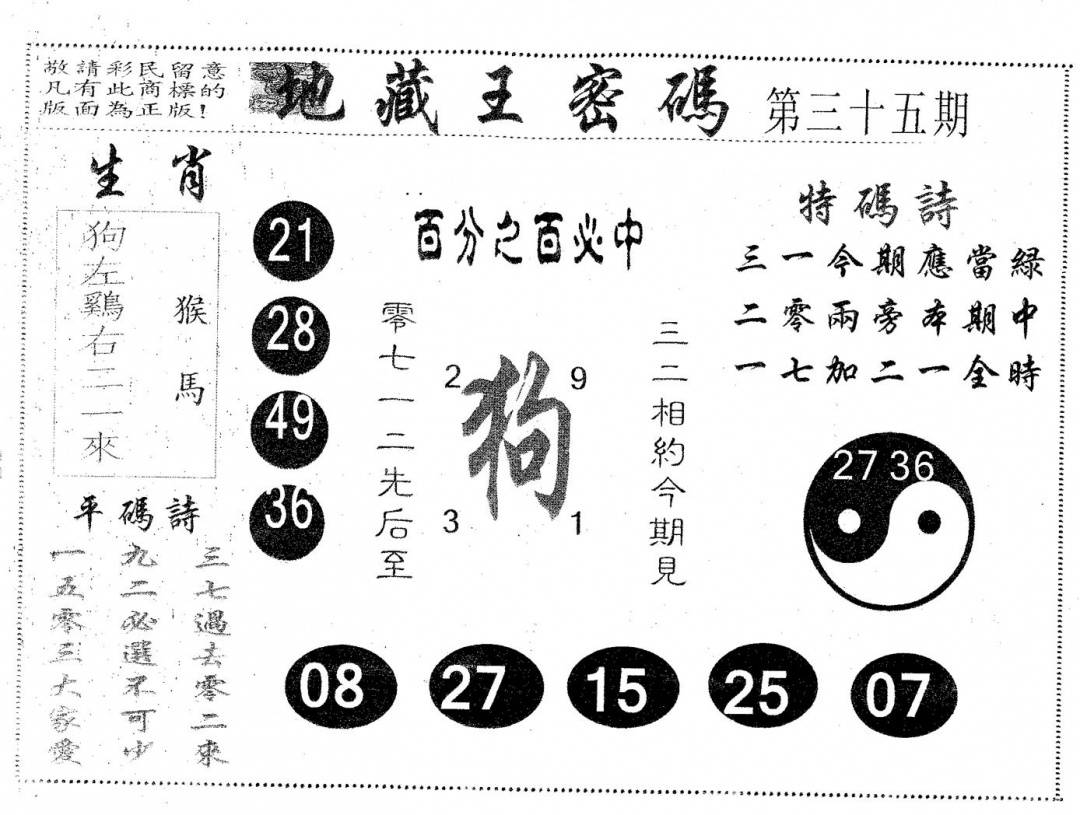 敬請彩民留意
凡有此商標的
版面為正版!
地藏王密碼
第三十五期
生肖
狗左雞右二一來
猴馬
平碼詩
三七過去零二來
九二必選不可少
一五零三大家愛
21
28
49
36
百分之百必中
零七一二先后至
2
9
狗
3
1
三二相約今期見
特碼詩
三一今期應當綠
二零兩旁本期中
一七加二一全時
27 36
08
27
15
25
07